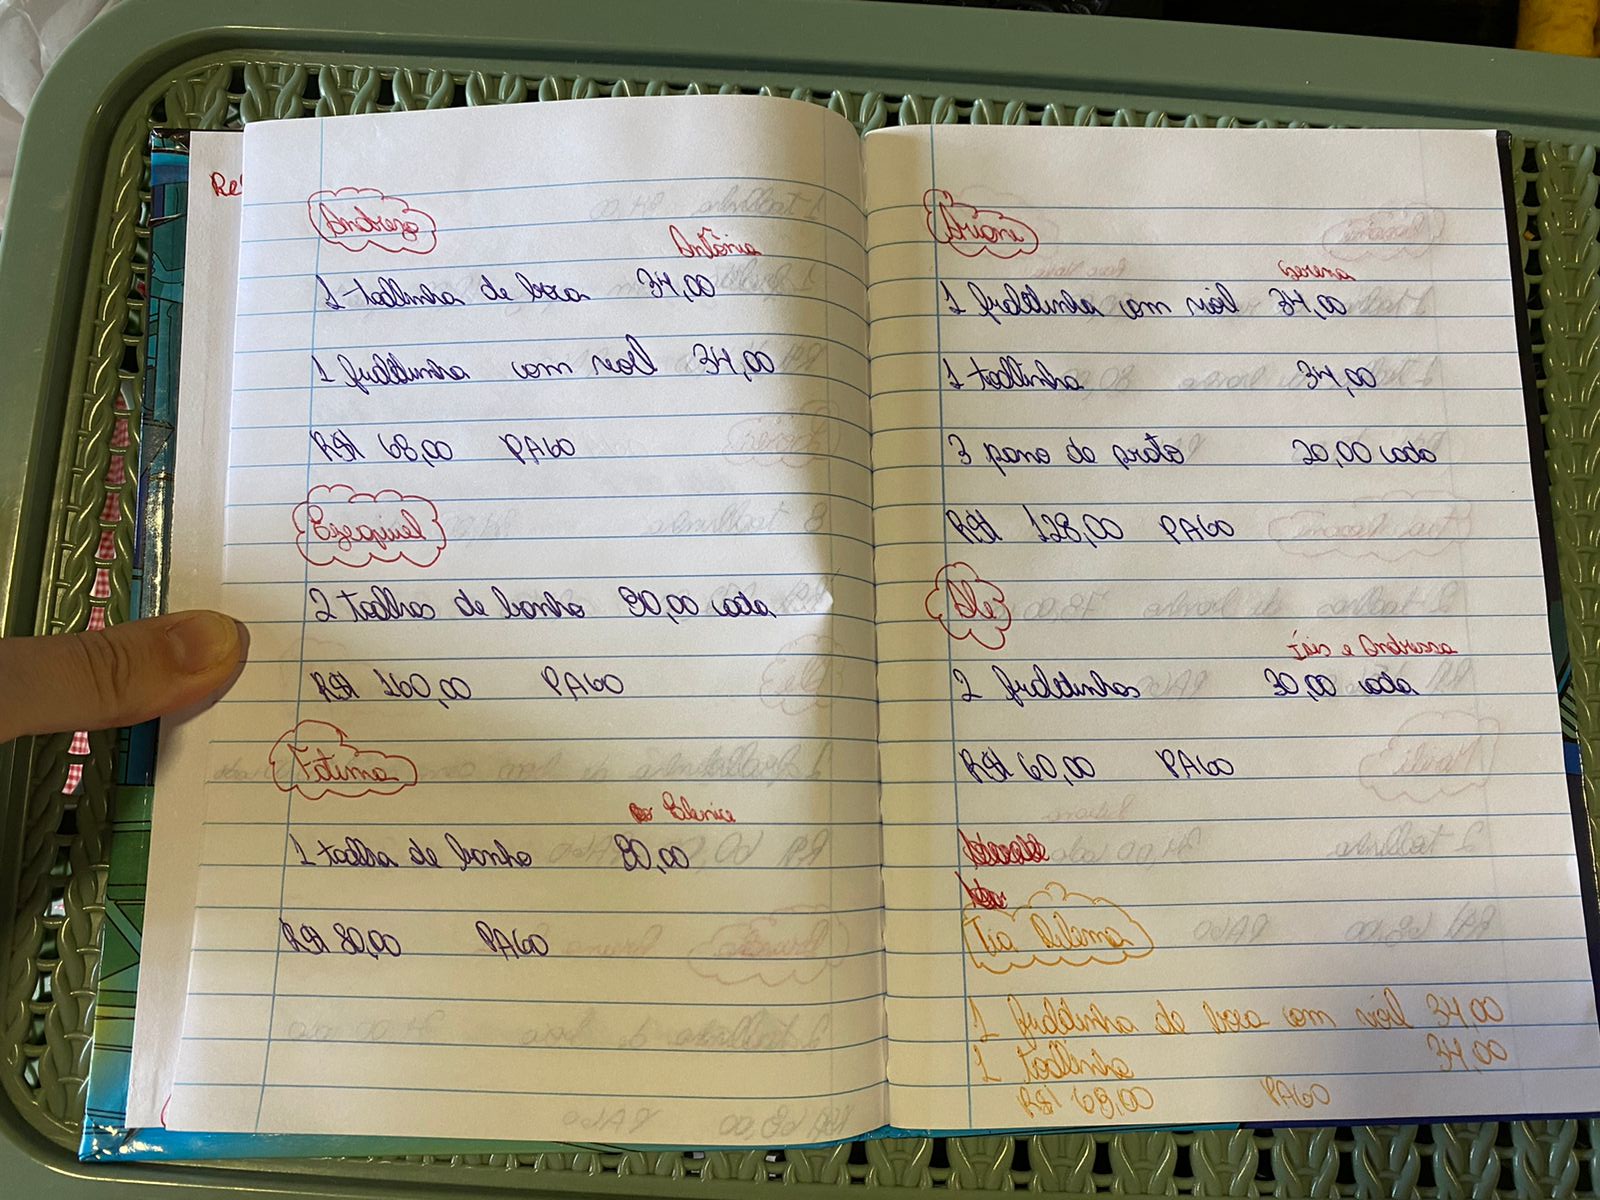 Re
Andreza
Antônia
1 toalhinha de boca 34,00
1 fraldinha com viol 34,00
R$ 68,00 PAGO
Ezequiel
2 toalhas de banho 80,00 cada
R$ 160,00 PAGO
Fatima
Elenice
1 toalha de banho 80,00
R$ 80,00 PAGO
Ariani
Serena
1 fraldinha com viol 34,00
1 toalhinha 34,00
3 pano de prato 20,00 cada
R$ 128,00 PAGO
Ale
Taís e Andressa
2 fraldinhas 30,00 cada
R$ 60,00 PAGO
Tia Dilema
1 fraldinha de boca com viol 34,00
1 toalhinha 34,00
R$ 68,00 PAGO